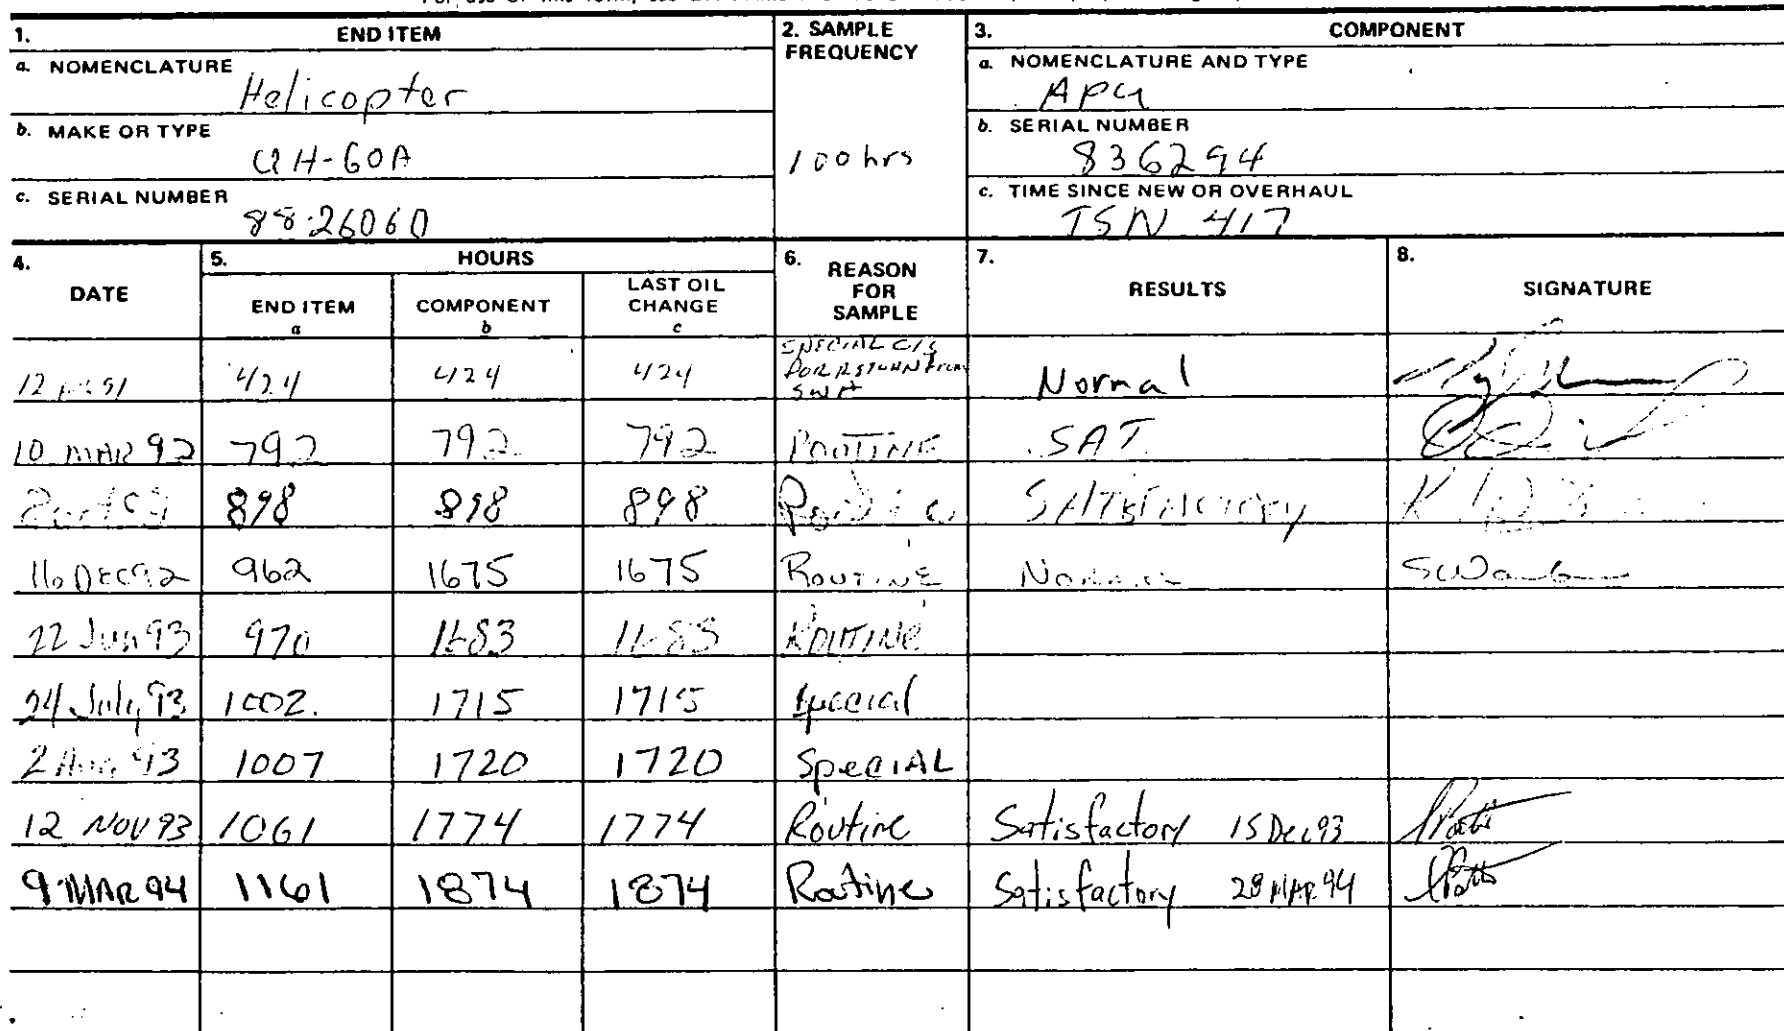 1. END ITEM
a. NOMENCLATURE
Helicopter
b. MAKE OR TYPE
UH-60A
c. SERIAL NUMBER
88-26060
2. SAMPLE FREQUENCY
100 hrs
3. COMPONENT
a. NOMENCLATURE AND TYPE
APU
b. SERIAL NUMBER
836294
c. TIME SINCE NEW OR OVERHAUL
TSN 417
4. DATE
5. HOURS
END ITEM a
COMPONENT b
LAST OIL CHANGE c
6. REASON FOR SAMPLE
7. RESULTS
8. SIGNATURE
12 91 424 424 424 SPECIAL Normal
10 MAR 92 792 792 792 ROUTINE SAT
898 898 898 Routine SATISFACTORY
16 DEC 92 962 1675 1675 ROUTINE Normal
22 Jun 93 970 1683 1683 ROUTINE
24 July 93 1002 1715 1715 special
2 Aug 93 1007 1720 1720 SpeciAL
12 NOV 93 1061 1774 1774 Routine Satisfactory 15 Dec 93
9 MAR 94 1161 1874 1874 Routine Satisfactory 28 MAR 94